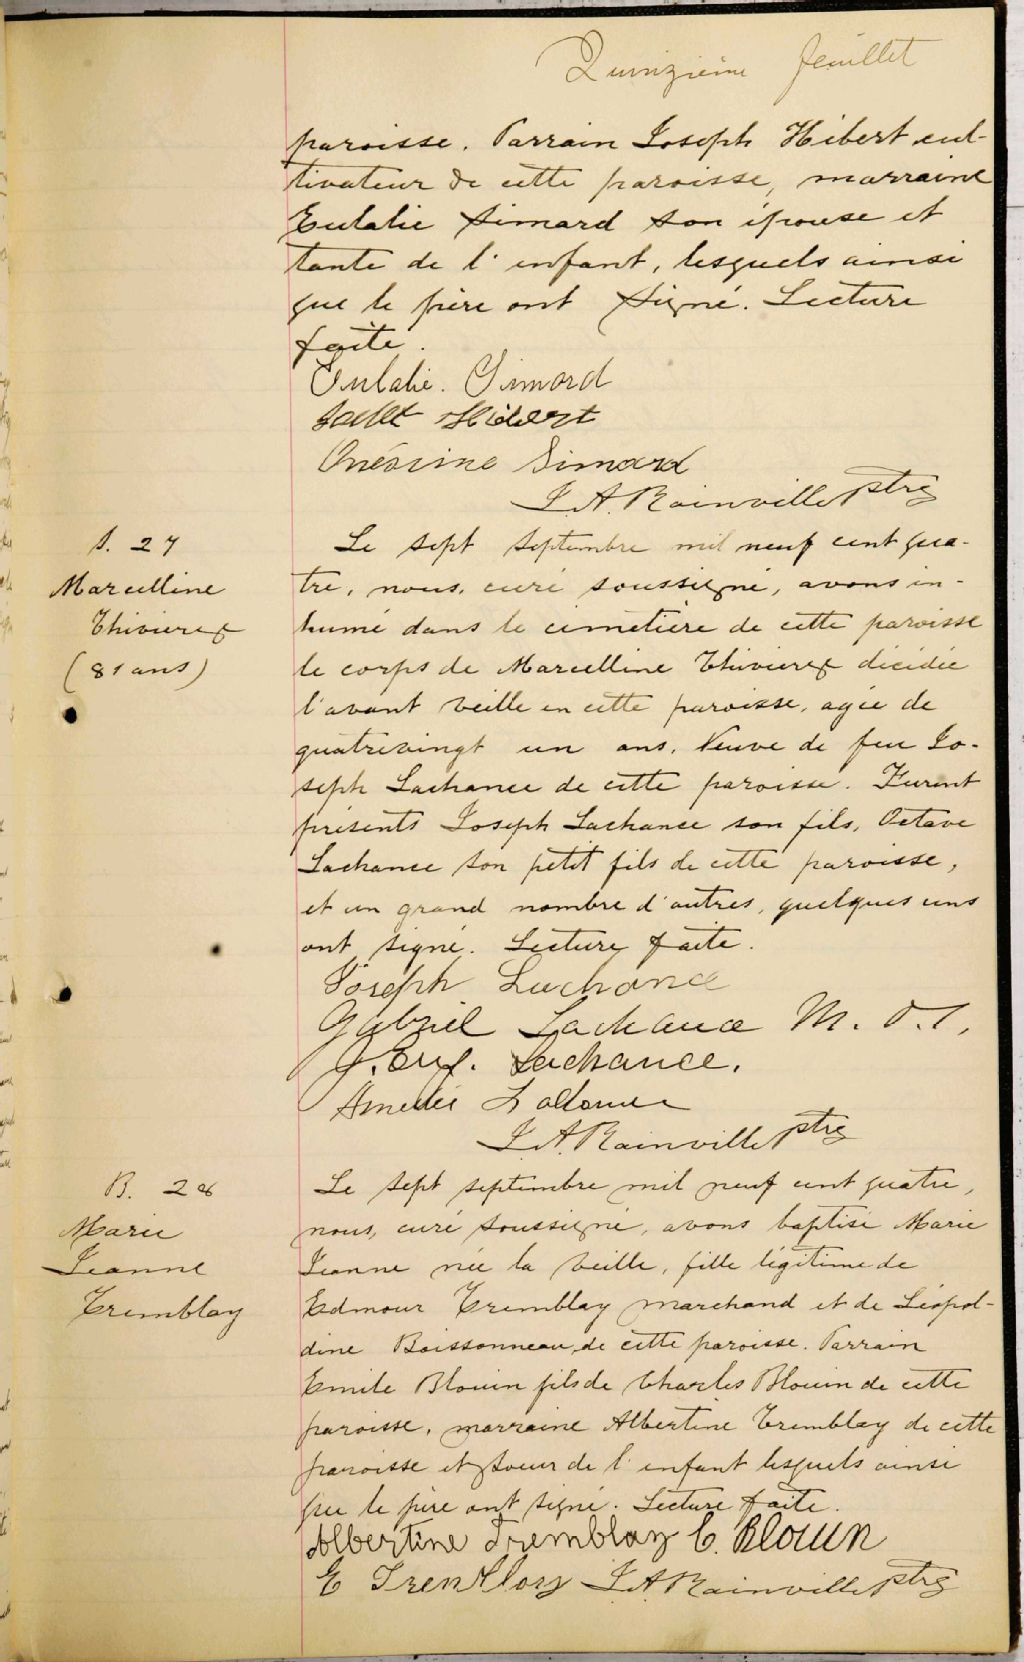 Quinzième feuillet
paroisse. Parrain Joseph Hébert cul-
tivateur de cette paroisse, marraine
Eulalie Simard son épouse et
tante de l'enfant, lesquels ainsi
que le père ont signé. Lecture
faite.
Eulalie. Simard
Hébert
Onésime Simard
J. A. Rainville ptre
S. 27
Marcelline
Thivierge
(81 ans)
Le sept septembre mil neuf cent qua-
tre, nous, curé soussigné, avons in-
humé dans le cimetière de cette paroisse
le corps de Marcelline Thivierge décédée
l'avant veille en cette paroisse, agée de
quatrevingt un ans. Veuve de feu Jo-
seph Lachance de cette paroisse. Furent
présents Joseph Lachance son fils, Octave
Lachance son petit fils de cette paroisse,
et un grand nombre d'autres, quelques uns
ont signé. Lecture faite.
Joseph Lachance
Gabriel Lachance M.
J. Eug. Lachance.
Amédée
J. A. Rainville ptre
B. 28
Marie
Jeanne
Tremblay
Le sept septembre mil neuf cent quatre,
nous, curé soussigné, avons baptisé Marie
Jeanne née la veille, fille légitime de
Edmour Tremblay marchand et de Léopol-
dine Boissonneau de cette paroisse. Parrain
Emile Blouin fils de Charles Blouin de cette
paroisse, marraine Albertine Tremblay de cette
paroisse et soeur de l'enfant lesquels ainsi
que le père ont signé. Lecture faite.
Albertine Tremblay E. Blouin
E Tremblay J. A. Rainville ptre